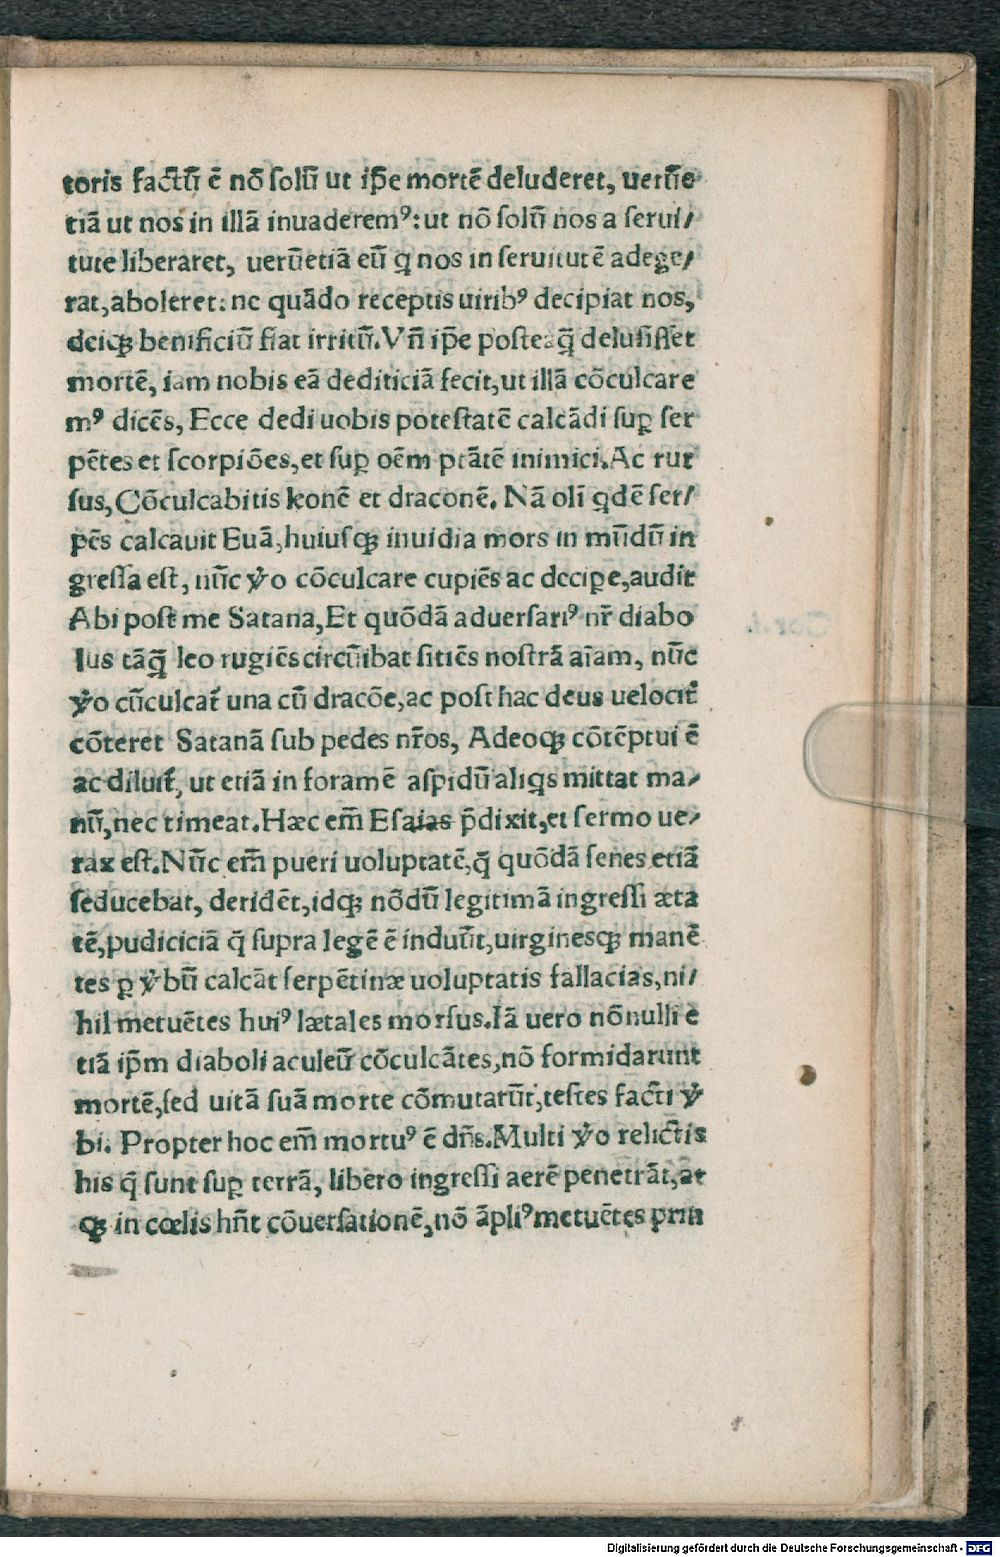 toris factũ ē nō ſolũ ut ip̄e mortē deluderet, uerũe
tiã ut nos in illã inuaderem⁹: ut nō ſolũ nos a ſerui/
tute liberaret, uerũetiã eũ q̃ nos in ſeruitutē adege/
rat, aboleret: ne quãdo receptis uirib⁹ decipiat nos,
deiqꝫ benificiũ fiat irritũ. Vñ ip̄e poſteaq̃ deluſiſſet
mortē, iam nobis eã dediticiã fecit, ut illã cōculcare
m⁹ dicēs, Ecce dedi uobis poteſtatē calcãdi ſuꝑ ſer
pētes et ſcorpiōes, et ſuꝑ oēm ptãtē inimici. Ac rur
ſus, Cōculcabitis leonē et draconē. Nã oli q̃dē ſer/
pēs calcauit Euã, huiuſqꝫ inuidia mors in mũdũ in
greſſa eſt, nũc v̊o cōculcare cupiēs ac deciꝑe, audit
Abi poſt me Satana, Et quōdã aduerſari⁹ nr̄ diabo
lus tãq̃ leo rugiēs circũibat ſitiēs noſtrã aīam, nũc
v̊o cũculcat̃ una cũ dracōe, ac poſt hac deus uelocit̃
cōteret Satanã ſub pedes nr̄os, Adeoqꝫ cōtēptui ē
ac diluit̃, ut etiã in foramē aſpidũ aliq̃s mittat ma/
nũ, nec timeat. Hæc em̄ Eſaias p̄dixit, et ſermo ue/
rax eſt. Nũc em̄ pueri uoluptatē, q̃ quōdã ſenes etiã
ſeducebat, deridēt, idqꝫ nōdũ legitimã ingreſſi æta
tē, pudiciciã q̃ ſupra legē ē induũt, uirgineſqꝫ manē
tes ꝑ v̊bũ calcãt ſerpētinæ uoluptatis fallacias, ni/
hil metuētes hui⁹ lætales morſus. Iã uero nōnulli e
tiã ip̄m diaboli aculeũ cōculcãtes, nō formidarunt
mortē, ſed uitã ſuã morte cōmutarũt, teſtes facti v̊
bi. Propter hoc em̄ mortu⁹ ē dñs. Multi v̊o relictis
his q̃ ſunt ſuꝑ terrã, libero ingreſſi aerē penetrãt, at
qꝫ in cœlis hñt cōuerſationē, nō ãpli⁹ metuētes prin
Digitalisierung gefördert durch die Deutsche Forschungsgemeinschaft - DFG